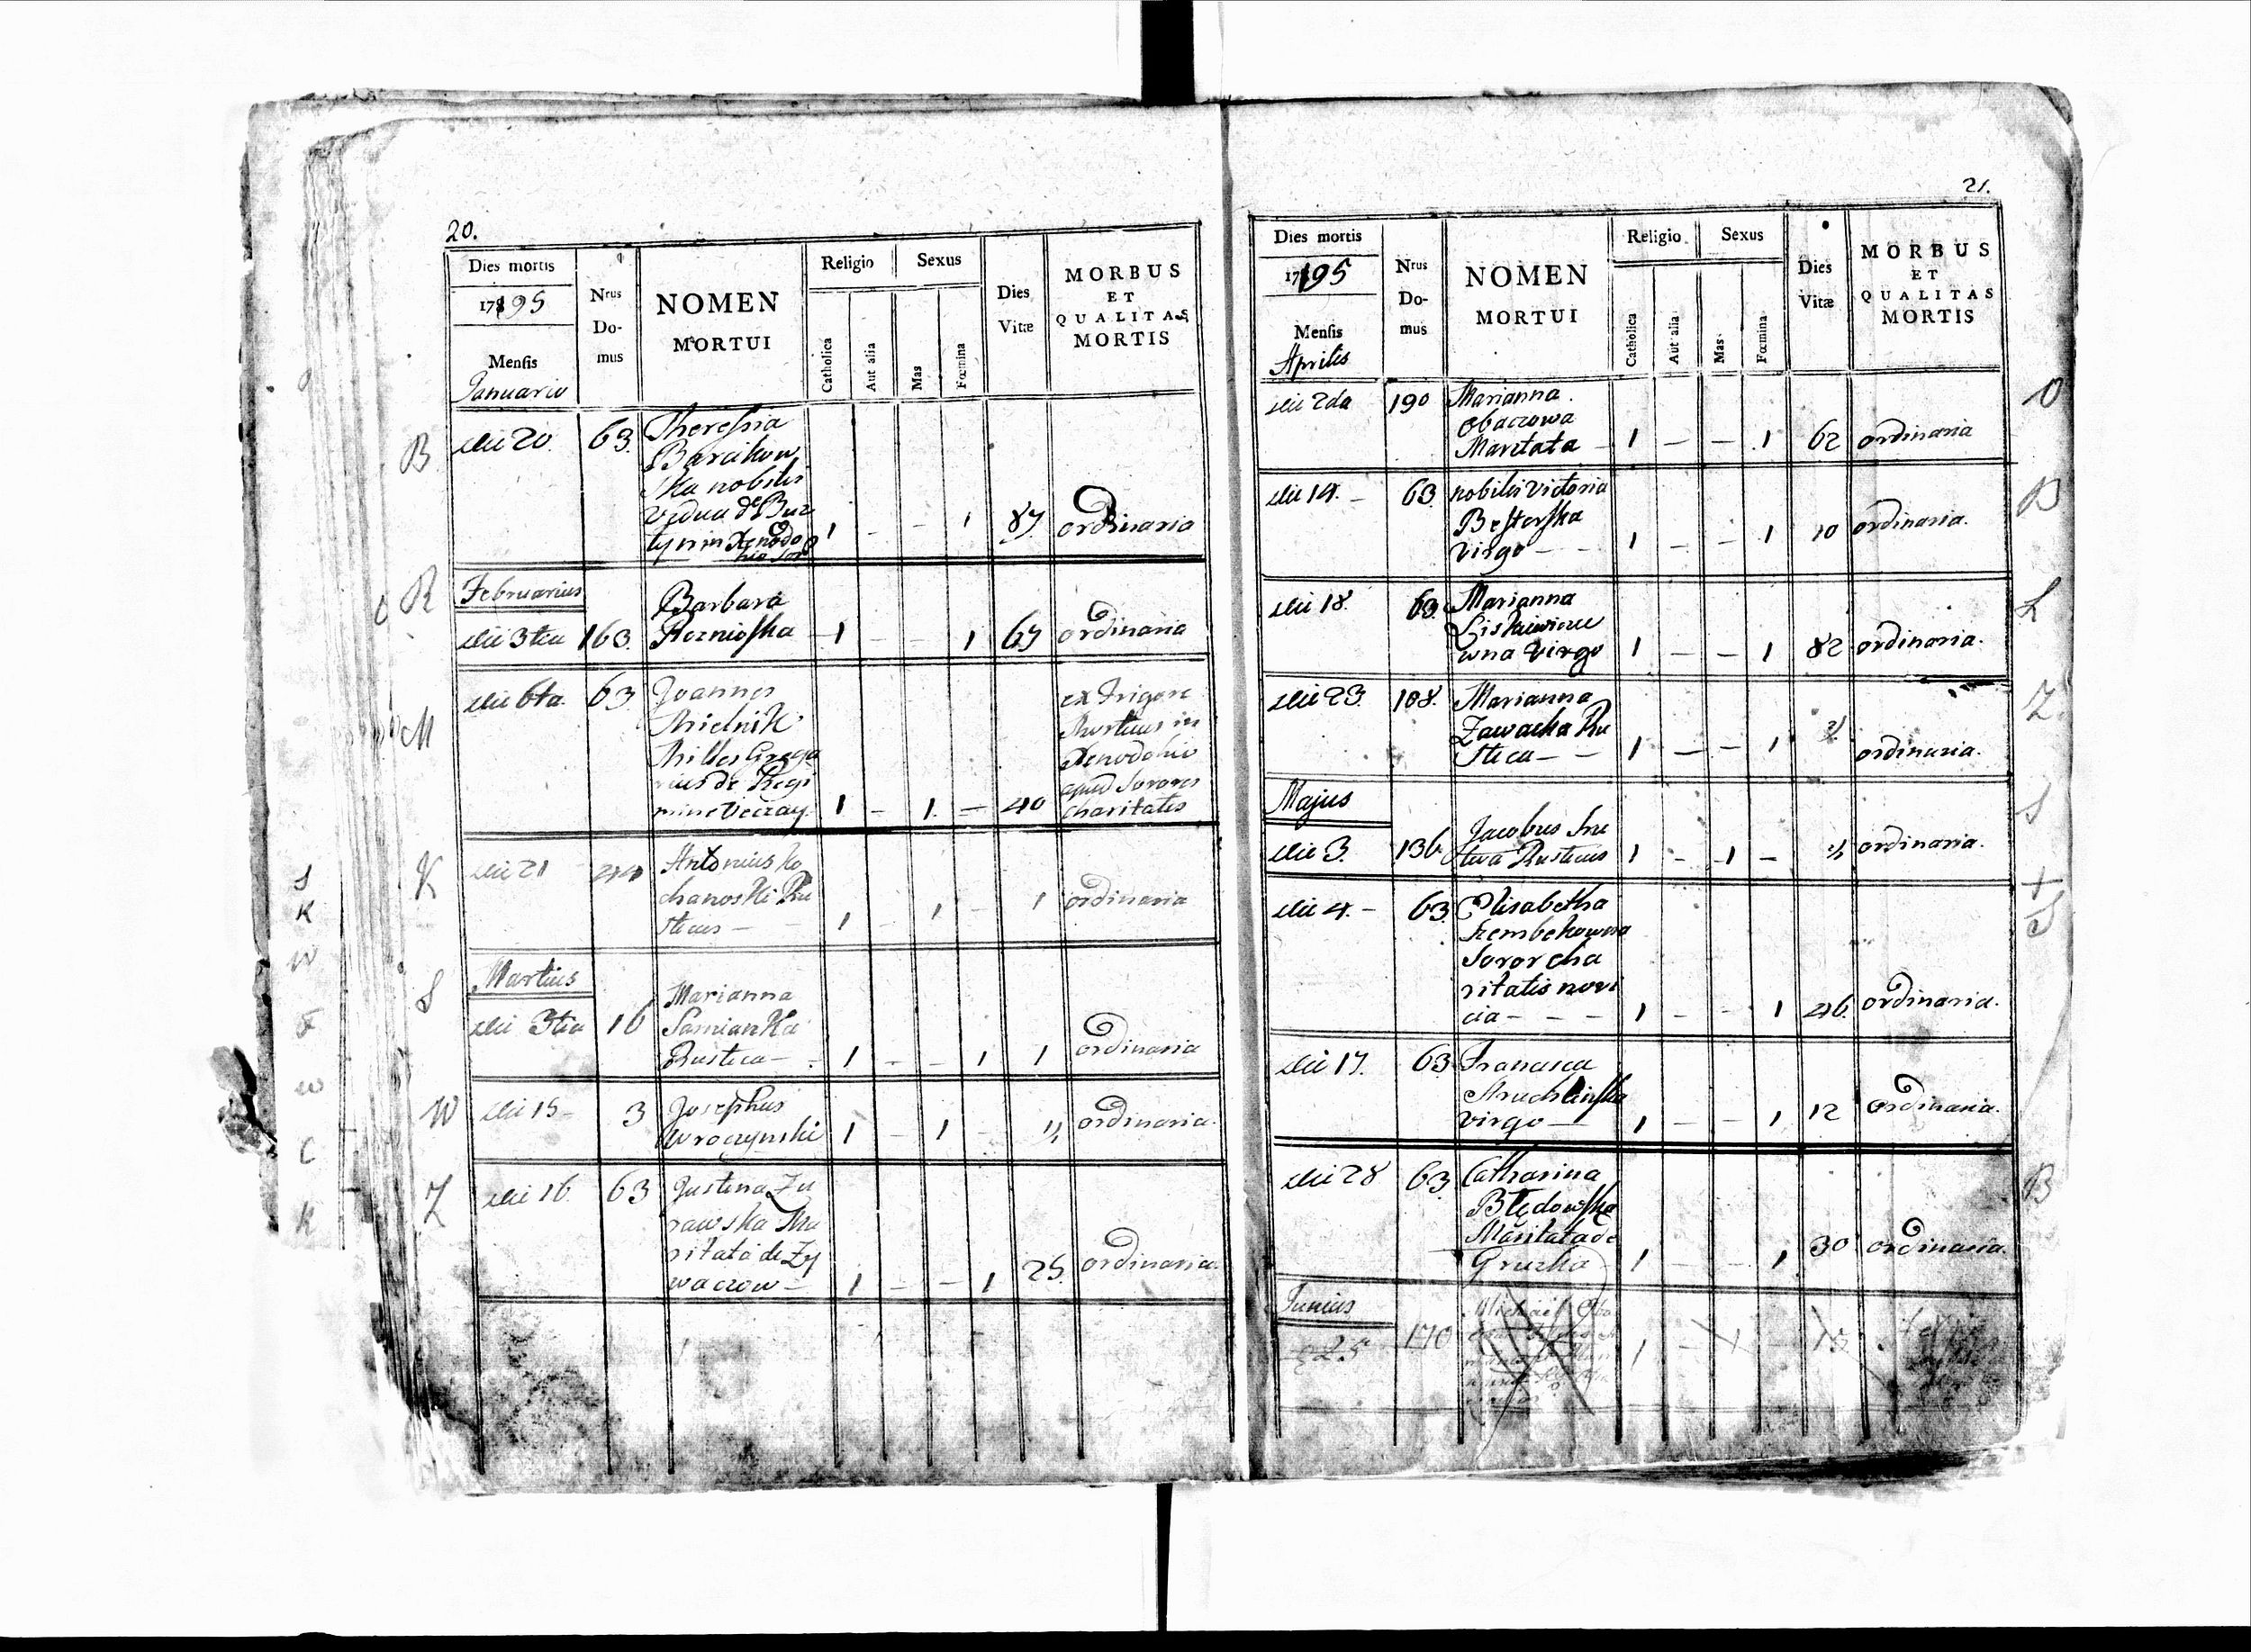 20.
Dies mortis
1795
Mensis
Januario
Nrus
Do-
mus
NOMEN
MORTUI
Religio
Catholica
Aut alia
Sexus
Mas
Fœmina
Dies
Vitæ
MORBUS
ET
QUALITAS
MORTIS
B
die 20.
63.
Theressia
Barcikow
ska nobilis
vidua de Buz
tyn in Xenodo
1 - - 1 87 ordinaria
R
Februarius
die 3tia 163.
Barbara
Roznioska 1 - - 1 67 ordinaria
M
die 6ta. 63.
Joannes
Mielnik
Milles Grega
rius de Regi
mine
1 - 1. - 40
ex frigore
Mortuus in
Xenodohio
apud Sorores
charitatis
K
die 21 44
Antonius Ko
chanoski Ru
sticus -
1 1 - 1 ordinaria
S
Martius
die 3tia 16
Marianna
Samianka
Rustica - 1 - - 1 1 ordinaria
W
die 15 - 3
Josephus
Wroczynski 1 - 1 - ordinaria.
Z
die 16. 63
Justina Zu
rawska Ma
ritata de Zy
waczow - 1 - - 1 25. ordinaria.
S
K
W
F
w
C
K
21.
Dies mortis
1795
Mensis
Aprilis
Nrus
Do-
mus
NOMEN
MORTUI
Religio
Catholica
Aut alia
Sexus
Mas
Fœmina
Dies
Vitæ
MORBUS
ET
QUALITAS
MORTIS
O
die 2da 190
Marianna
Obaczowa
Maritata - 1 - - 1 62 ordinaria
B
die 14. - 63.
nobilis Victoria
Besterska
virgo - - 1 - - 1 10 ordinaria.
L
die 18. 63.
Marianna
Liskiewicze
wna virgo 1 - - 1 82 ordinaria.
Z
die 23. 108.
Marianna
Zawacka Ru
stica - - 1 - - 1 ordinaria.
S
Majus
die 3. 136.
Jacobus
Rusticus 1 - 1 - ordinaria.
+
S
die 4. - 63.
Elisabetha
Szembekowna
Soror cha
ritatis novi
cia - - - 1 - - 1 46. ordinaria.
die 17. 63.
Francisca
Struchlinska
virgo - 1 - - 1 12 ordinaria.
B
die 28 63.
Catharina
Błędowska
Maritata de
Gruszka 1 - - 1 30 ordinaria.
Junius
25 170
Michail
1 - 1 -